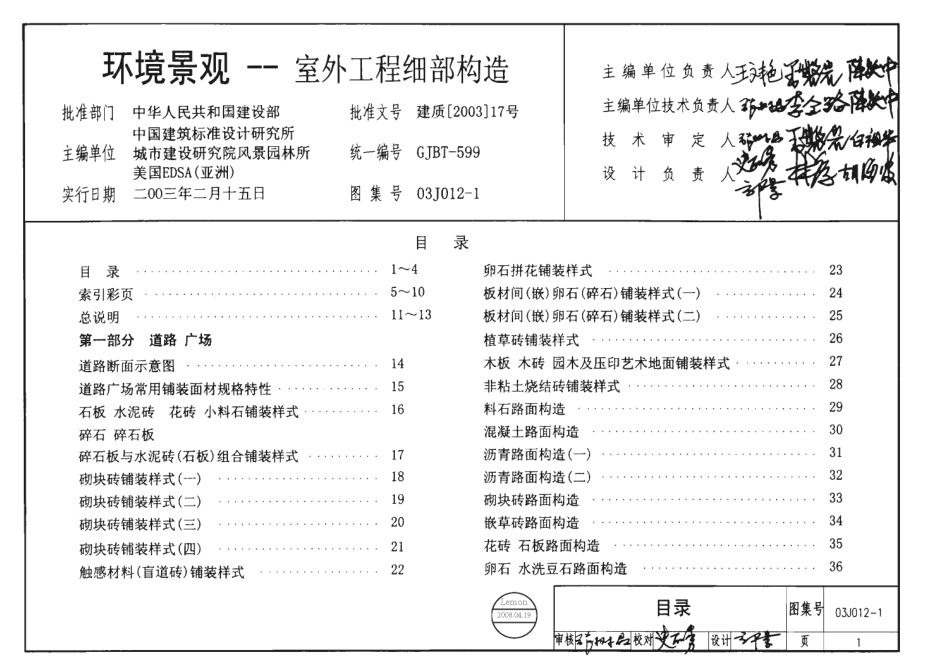 环境景观 -- 室外工程细部构造
批准部门 中华人民共和国建设部 批准文号 建质[2003]17号
中国建筑标准设计研究所
主编单位 城市建设研究院风景园林所 统一编号 GJBT-599
美国EDSA(亚洲)
实行日期 二00三年二月十五日 图集号 03J012-1
主编单位负责人
主编单位技术负责人
技术审定人
设计负责人
目 录
目 录 1~4
索引彩页 5~10
总说明 11~13
第一部分 道路 广场
道路断面示意图 14
道路广场常用铺装面材规格特性 15
石板 水泥砖 花砖 小料石铺装样式 16
碎石 碎石板
碎石板与水泥砖(石板)组合铺装样式 17
砌块砖铺装样式(一) 18
砌块砖铺装样式(二) 19
砌块砖铺装样式(三) 20
砌块砖铺装样式(四) 21
触感材料(盲道砖)铺装样式 22
卵石拼花铺装样式 23
板材间(嵌)卵石(碎石)铺装样式(一) 24
板材间(嵌)卵石(碎石)铺装样式(二) 25
植草砖铺装样式 26
木板 木砖 园木及压印艺术地面铺装样式 27
非粘土烧结砖铺装样式 28
料石路面构造 29
混凝土路面构造 30
沥青路面构造(一) 31
沥青路面构造(二) 32
砌块砖路面构造 33
嵌草砖路面构造 34
花砖 石板路面构造 35
卵石 水洗豆石路面构造 36
Lemon
2008.04.19
目录 图集号 03J012-1
审核 校对 设计 页 1